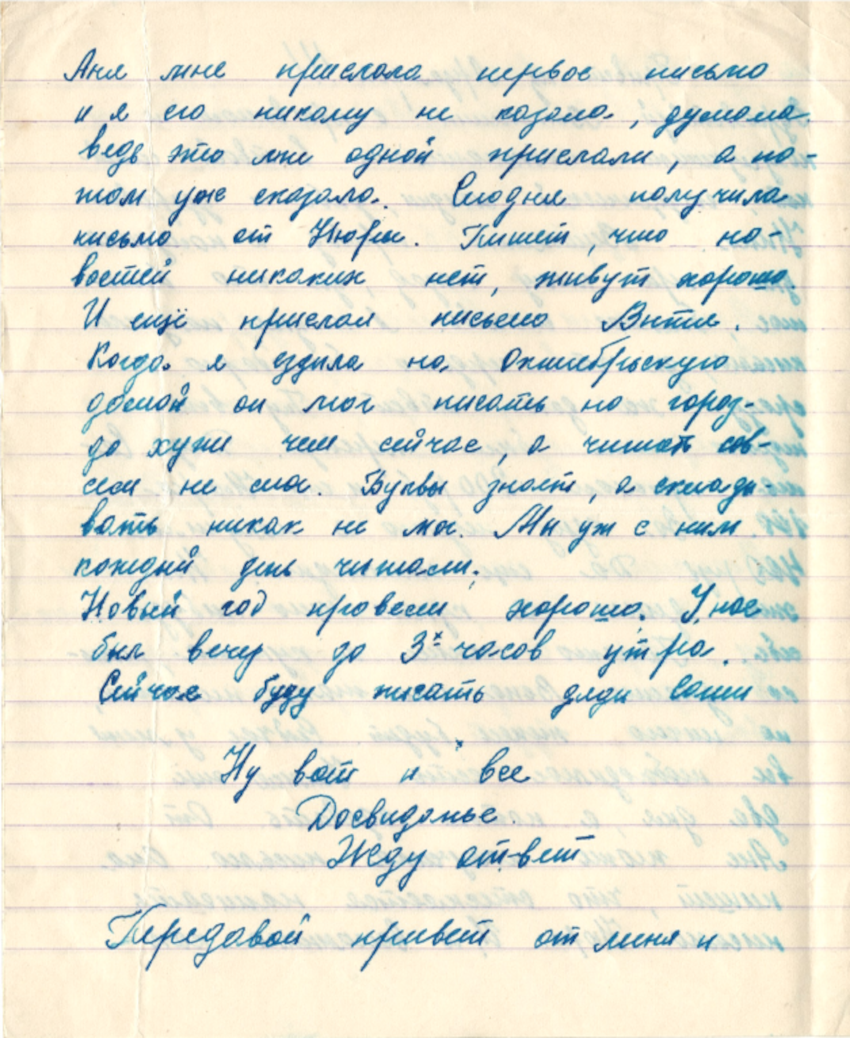 Аня мне прислала первое письмо
и я его никому не казала, думала
ведь это мне одной прислали, а по-
том уж сказала. Сегодня получила
письмо от Нюры. Пишет, что но-
востей никаких нет, живут хорошо.
И ещё прислал письмо Витя.
Когда я ездила на Октябрьскую
домой он мог писать но гораз-
до хуже чем сейчас, а читать сов-
сем не мог. Буквы знает, а склады-
вать никак не мог. Мы уж с ним
каждый день читали.
Новый год провели хорошо. У нас
был вечер до 3х часов утра.
Сейчас буду писать дяди Саши
Ну вот и все
Досвиданье.
Жду ответ
Передавай привет от меня и